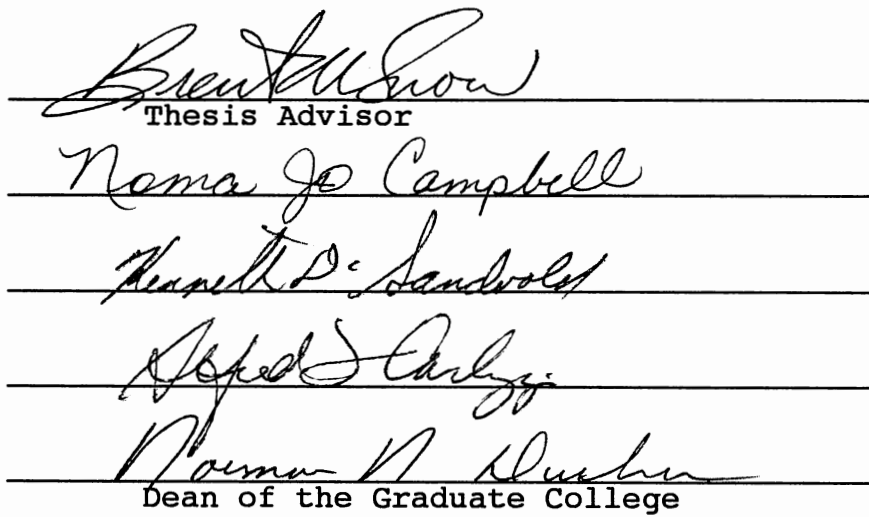 Brent M Snow
Thesis Advisor
Noma Jo Campbell
Kenneth D. Sandvold
Alfred Carlozzi
Norman N
Dean of the Graduate College